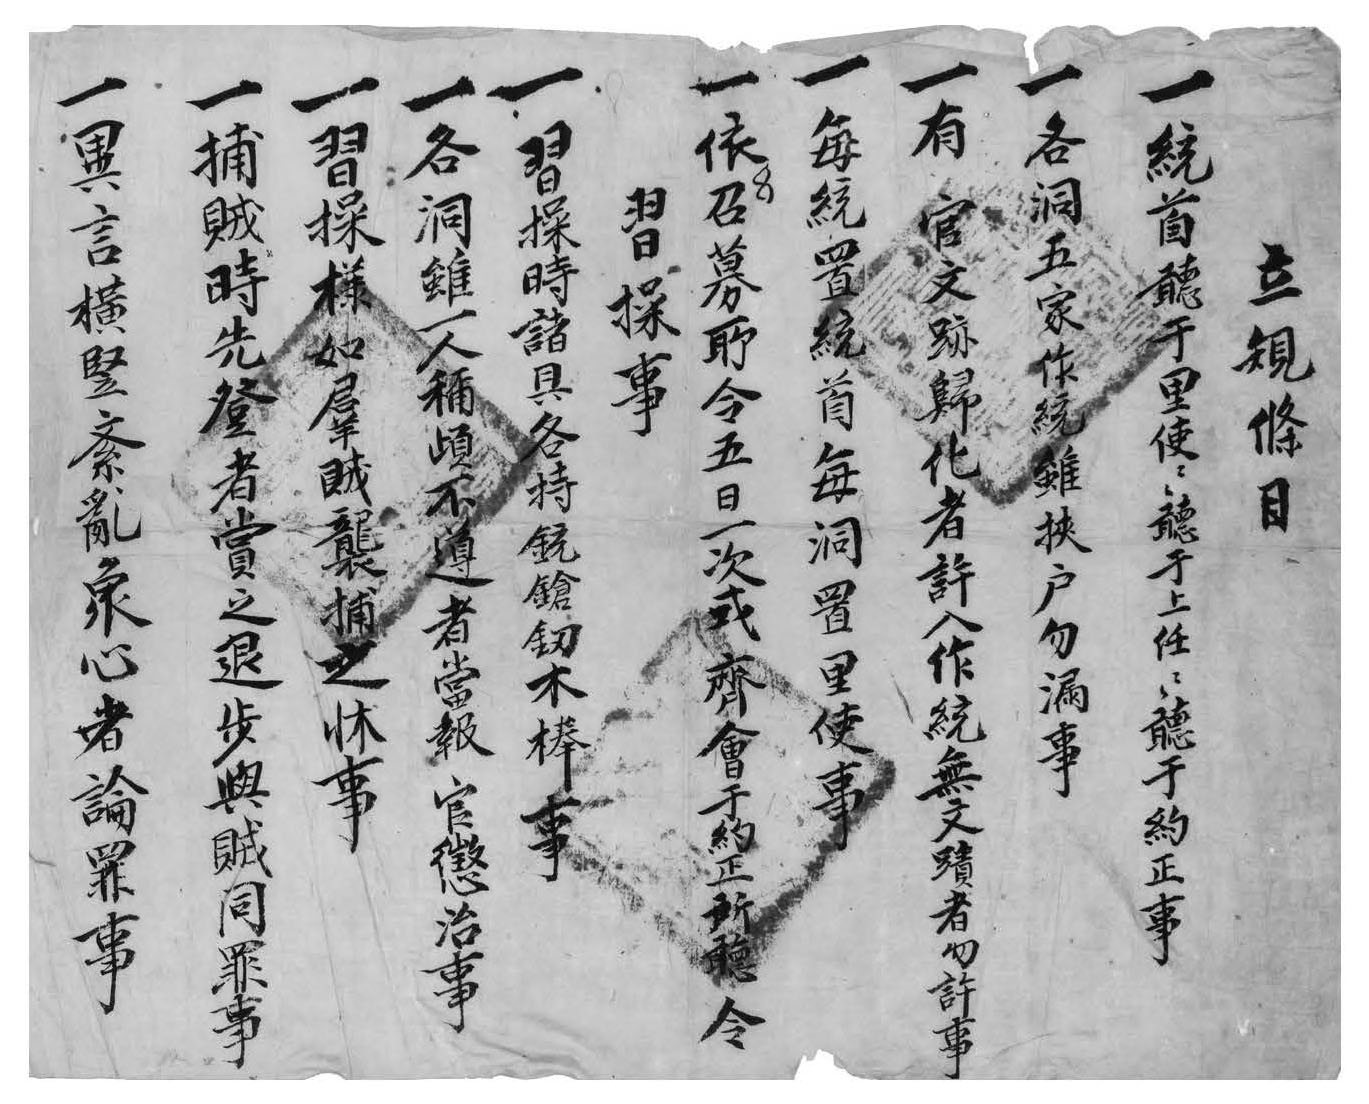 立規條目
一統首聽于里使〻聽于上任〻聽于約正事
一各洞五家作統雖挾户勿漏事
一有 官文跡歸化者許入作統無文蹟者勿許事
一每統置統首每洞置里使事
一依召募所令五日一次式齊會于約正所聽 令
習操事
一習操時諸具各持銃鎗釰木棒事
一各洞雖一人稱頉不遵者當報 官懲治事
一習操様如羣賊襲捕之㨾事
一捕賊時先登者賞之退步與賊同罪事
一異言橫竪紊亂衆心者論罪事